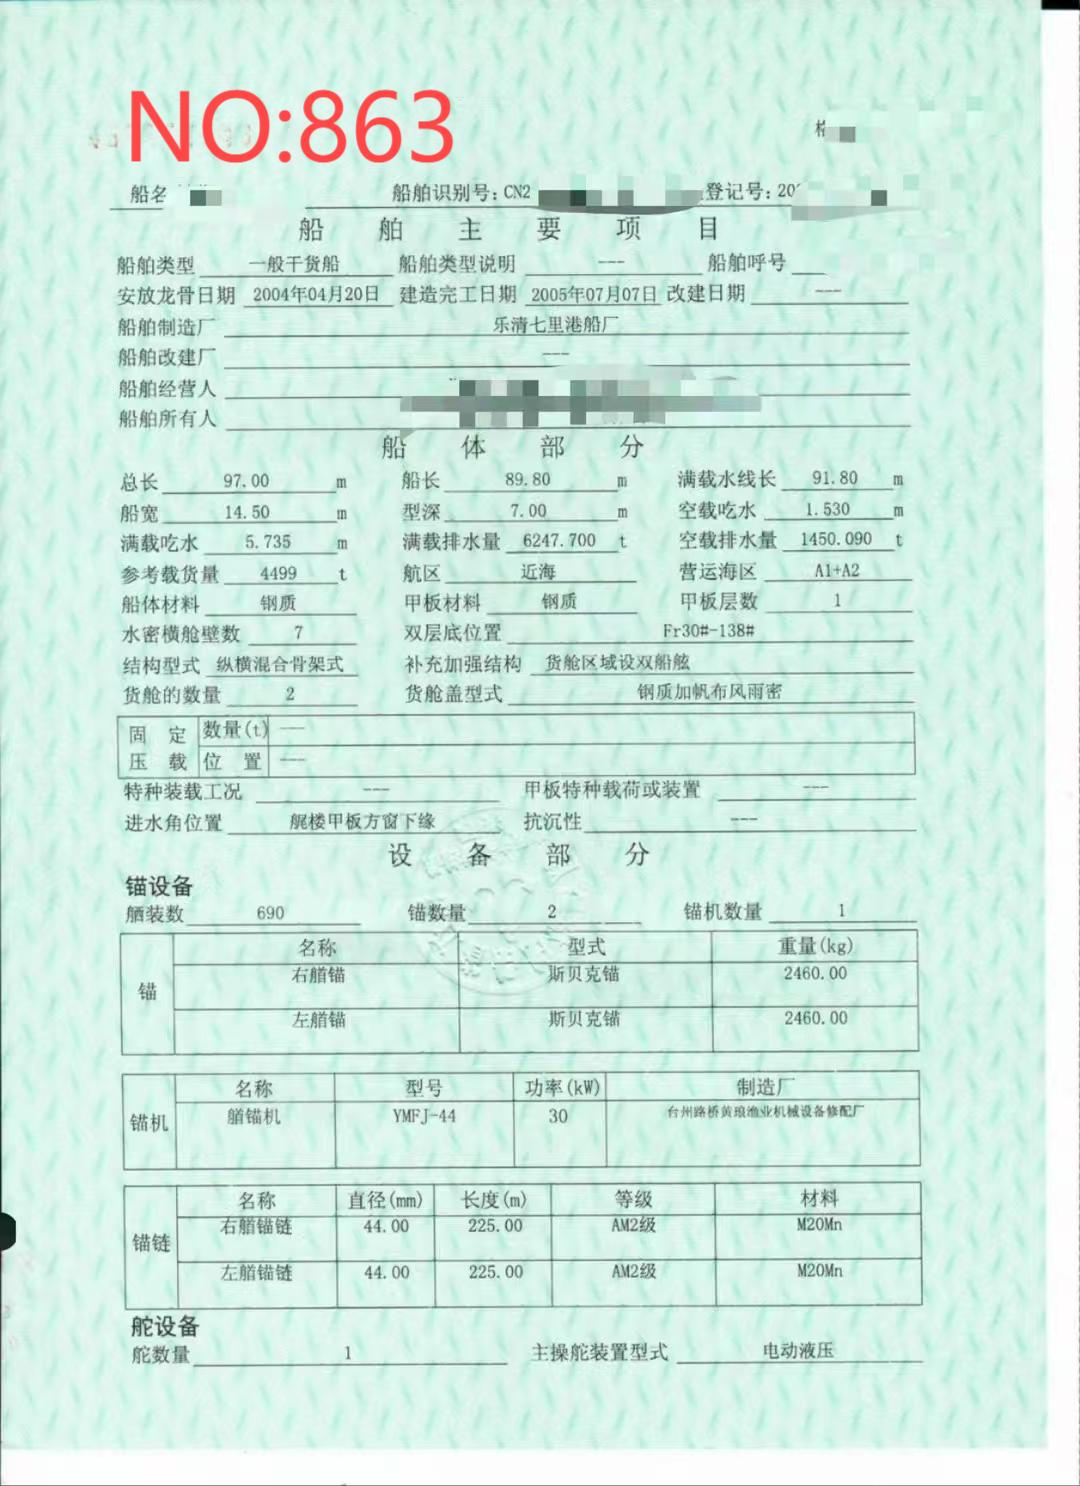 NO:863
船名 船舶识别号:CN2 登记号:20
船舶主要项目
船舶类型 一般干货船 船舶类型说明 --- 船舶呼号
安放龙骨日期 2004年04月20日 建造完工日期 2005年07月07日 改建日期 ---
船舶制造厂 乐清七里港船厂
船舶改建厂 ---
船舶经营人
船舶所有人
船体部分
总长 97.00 m 船长 89.80 m 满载水线长 91.80 m
船宽 14.50 m 型深 7.00 m 空载吃水 1.530 m
满载吃水 5.735 m 满载排水量 6247.700 t 空载排水量 1450.090 t
参考载货量 4499 t 航区 近海 营运海区 A1+A2
船体材料 钢质 甲板材料 钢质 甲板层数 1
水密横舱壁数 7 双层底位置 Fr30#-138#
结构型式 纵横混合骨架式 补充加强结构 货舱区域设双船舷
货舱的数量 2 货舱盖型式 钢质加帆布风雨密
固定 数量(t) ---
压载 位置 ---
特种装载工况 --- 甲板特种载荷或装置 ---
进水角位置 艉楼甲板方窗下缘 抗沉性 ---
设备部分
锚设备
舾装数 690 锚数量 2 锚机数量 1
名称 型式 重量(kg)
锚 右艏锚 斯贝克锚 2460.00
左艏锚 斯贝克锚 2460.00
名称 型号 功率(kW) 制造厂
锚机 艏锚机 YMFJ-44 30 台州路桥黄琅渔业机械设备修配厂
名称 直径(mm) 长度(m) 等级 材料
锚链 右艏锚链 44.00 225.00 AM2级 M20Mn
左艏锚链 44.00 225.00 AM2级 M20Mn
舵设备
舵数量 1 主操舵装置型式 电动液压